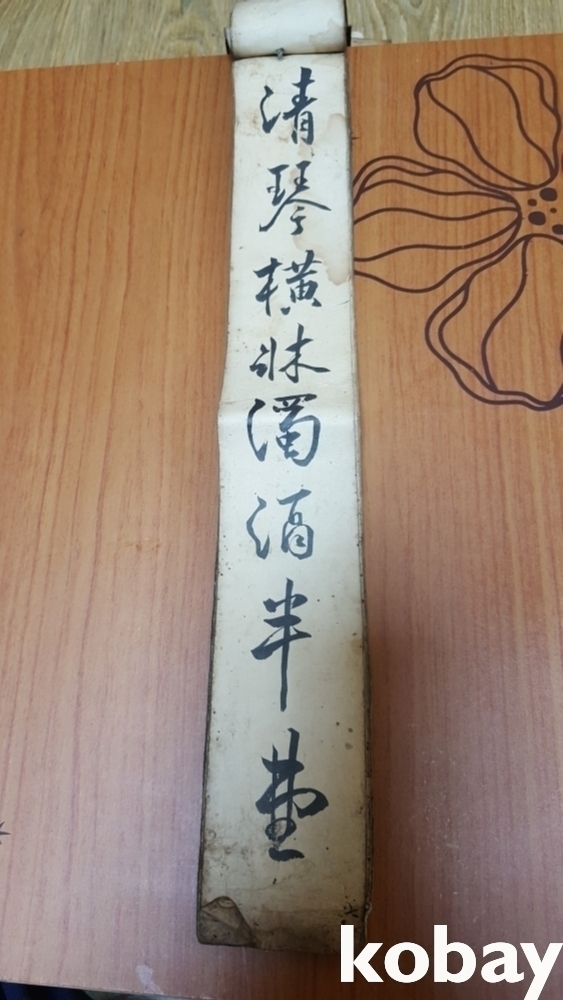 清琴橫牀濁酒半壺
kobay